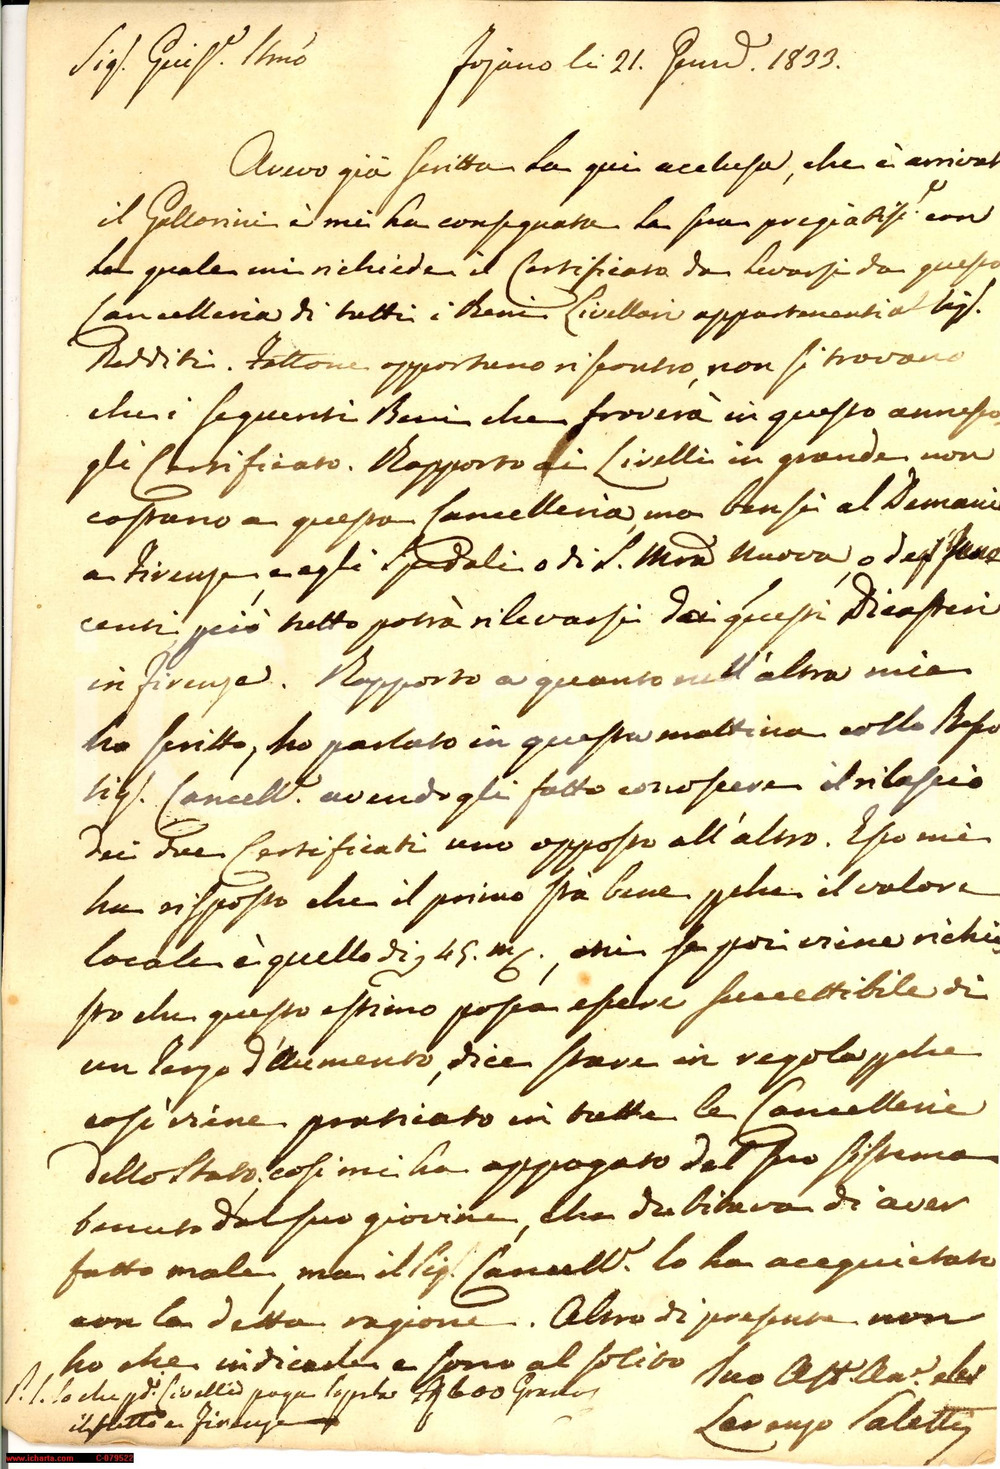 Sig.r Guis.e Stmo
Fojano li 21. Genn.o 1833.
Avevo già scritta la qui acclusa, che è arrivat
il Gallorini è mi ha consegnata la sua pregiatis.a con
la quale mi richiede il Certificato da levarsi da questa
Cancelleria di tutti i Beni Livellari appartenenti al Sig.
Redditi. Fattone opportuno riscontro, non si trovano
che i seguenti Beni che troverà in questo annesso
gli Certificato. Rapporto ai Livelli in grande non
costano a questa Cancelleria, ma bensì al Demani
a Firenze, e agli Spedali o di S. M.ra Nuova, o degl' Inno
centi, perciò tutto potrà rilevarsi dai questi Dicasteri
in Firenze. Rapporto a quanto nell'altra mia
ho scritto, ho parlato in questa mattina collo stesso
Sig. Cancell.e avendogli fatto conoscere il rilascio
dei due Certificati uno opposto all'altro. Esso mi
ha risposto che il primo sta bene pche il valore
locale è quello di 45. m, oni se poi viene richie
sto che questo estimo possa essere succettibile di
un Terzo d'Aumento, dice stare in regola pche
così viene praticato in tutte le Cancellerie
dello Stato, così mi ha appagato del suo sistema
tenuto dal suo giovine, che dubitava di aver
fatto male, ma il Sig. Cancell.e lo ha acquietato
con la detta ragione. Altro di presente non
ho che indicarle e sono al solito
Suo Aff. Am.o
P.S. So che pd.i Livelli paga sopra 600 Grano
il tutto a Firenze
Lorenzo Saletti
www.icharta.com C-079522